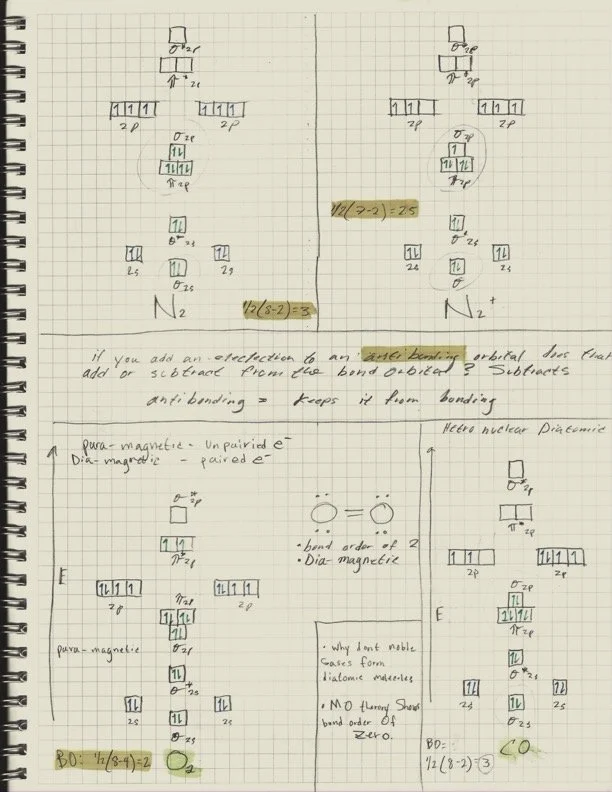 σ*2p
π*2s
2p 2p
σ2p
π2p
σ*2s
2s 2s
σ2s
N2
1/2(8-2)=3
σ*2p
π*2p
2p 2p
σ2p
π2p
1/2(7-2)=2.5
σ*2s
2s 2s
σ
N2+
if you add an electection to an antibonding orbital does that
add or subtract from the bond orbital? Subtracts
antibonding = keeps it from bonding
para-magnetic - Unpairied e-
Dia-magnetic - paired e-
σ*2p
π*2p
E
2p 2p
π2p
σ2p
para-magnetic
σ*2s
2s 2s
σ2s
BO: 1/2(8-4)=2 O2
=
• bond order of 2
• Dia-magnetic
• why dont noble
Gases form
diatomic molecules
• MO theory Shows
bond order Of
Zero.
Hetro nuclear Diatomic
σ*2p
π*2p
2p 2p
σ2p
E
π2p
σ*2s
2s 2s
σ2s
BO:
1/2(8-2)=3
CO